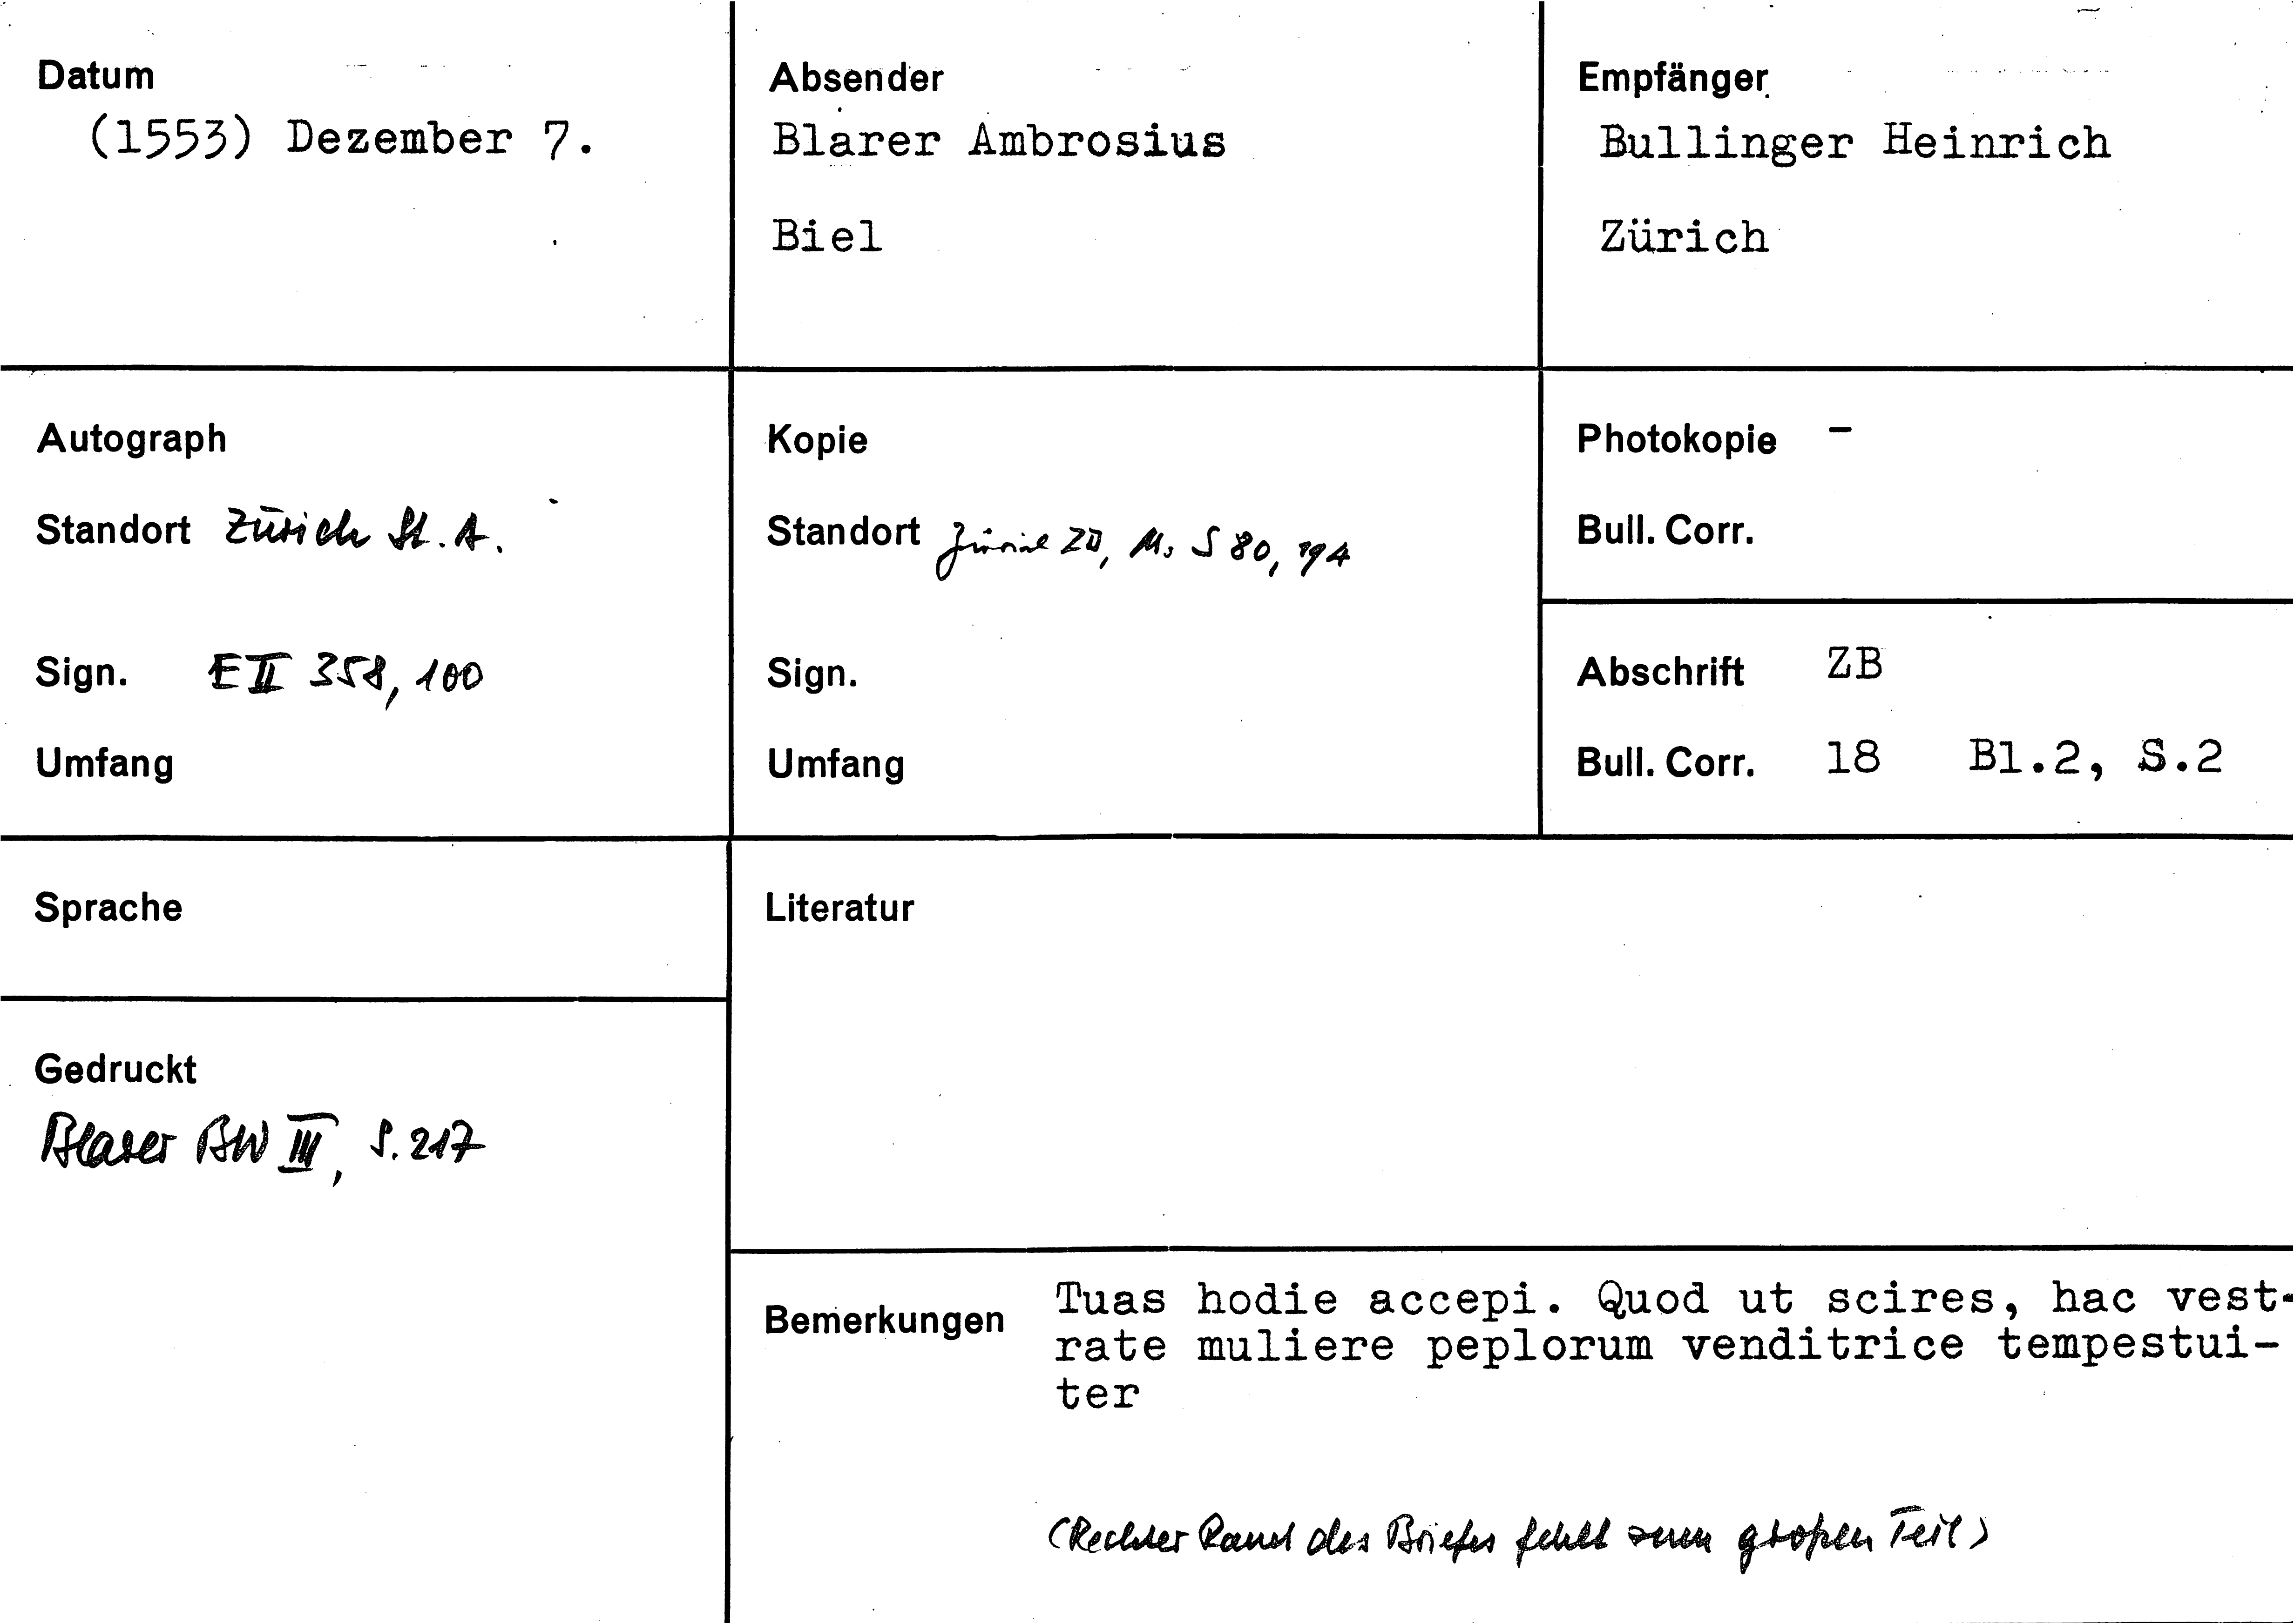 Datum
(1553) Dezember 7.
Absender
Blarer Ambrosius
Biel
Empfänger
Bullinger Heinrich
Zürich
Autograph
Standort Zürich St. A.
Sign. E II 358, 100
Umfang
Kopie
Standort Zürich ZB, Ms S 80, 194
Sign.
Umfang
Photokopie -
Bull. Corr.
Abschrift ZB
Bull. Corr. 18 Bl.2, S.2
Sprache
Gedruckt
Blarer BW III, S. 217
Literatur
Bemerkungen
Tuas hodie accepi. Quod ut scires, hac vest-
rate muliere peplorum venditrice tempestui-
ter
(Rechter Rand des Briefes fehlt zum großen Teil)